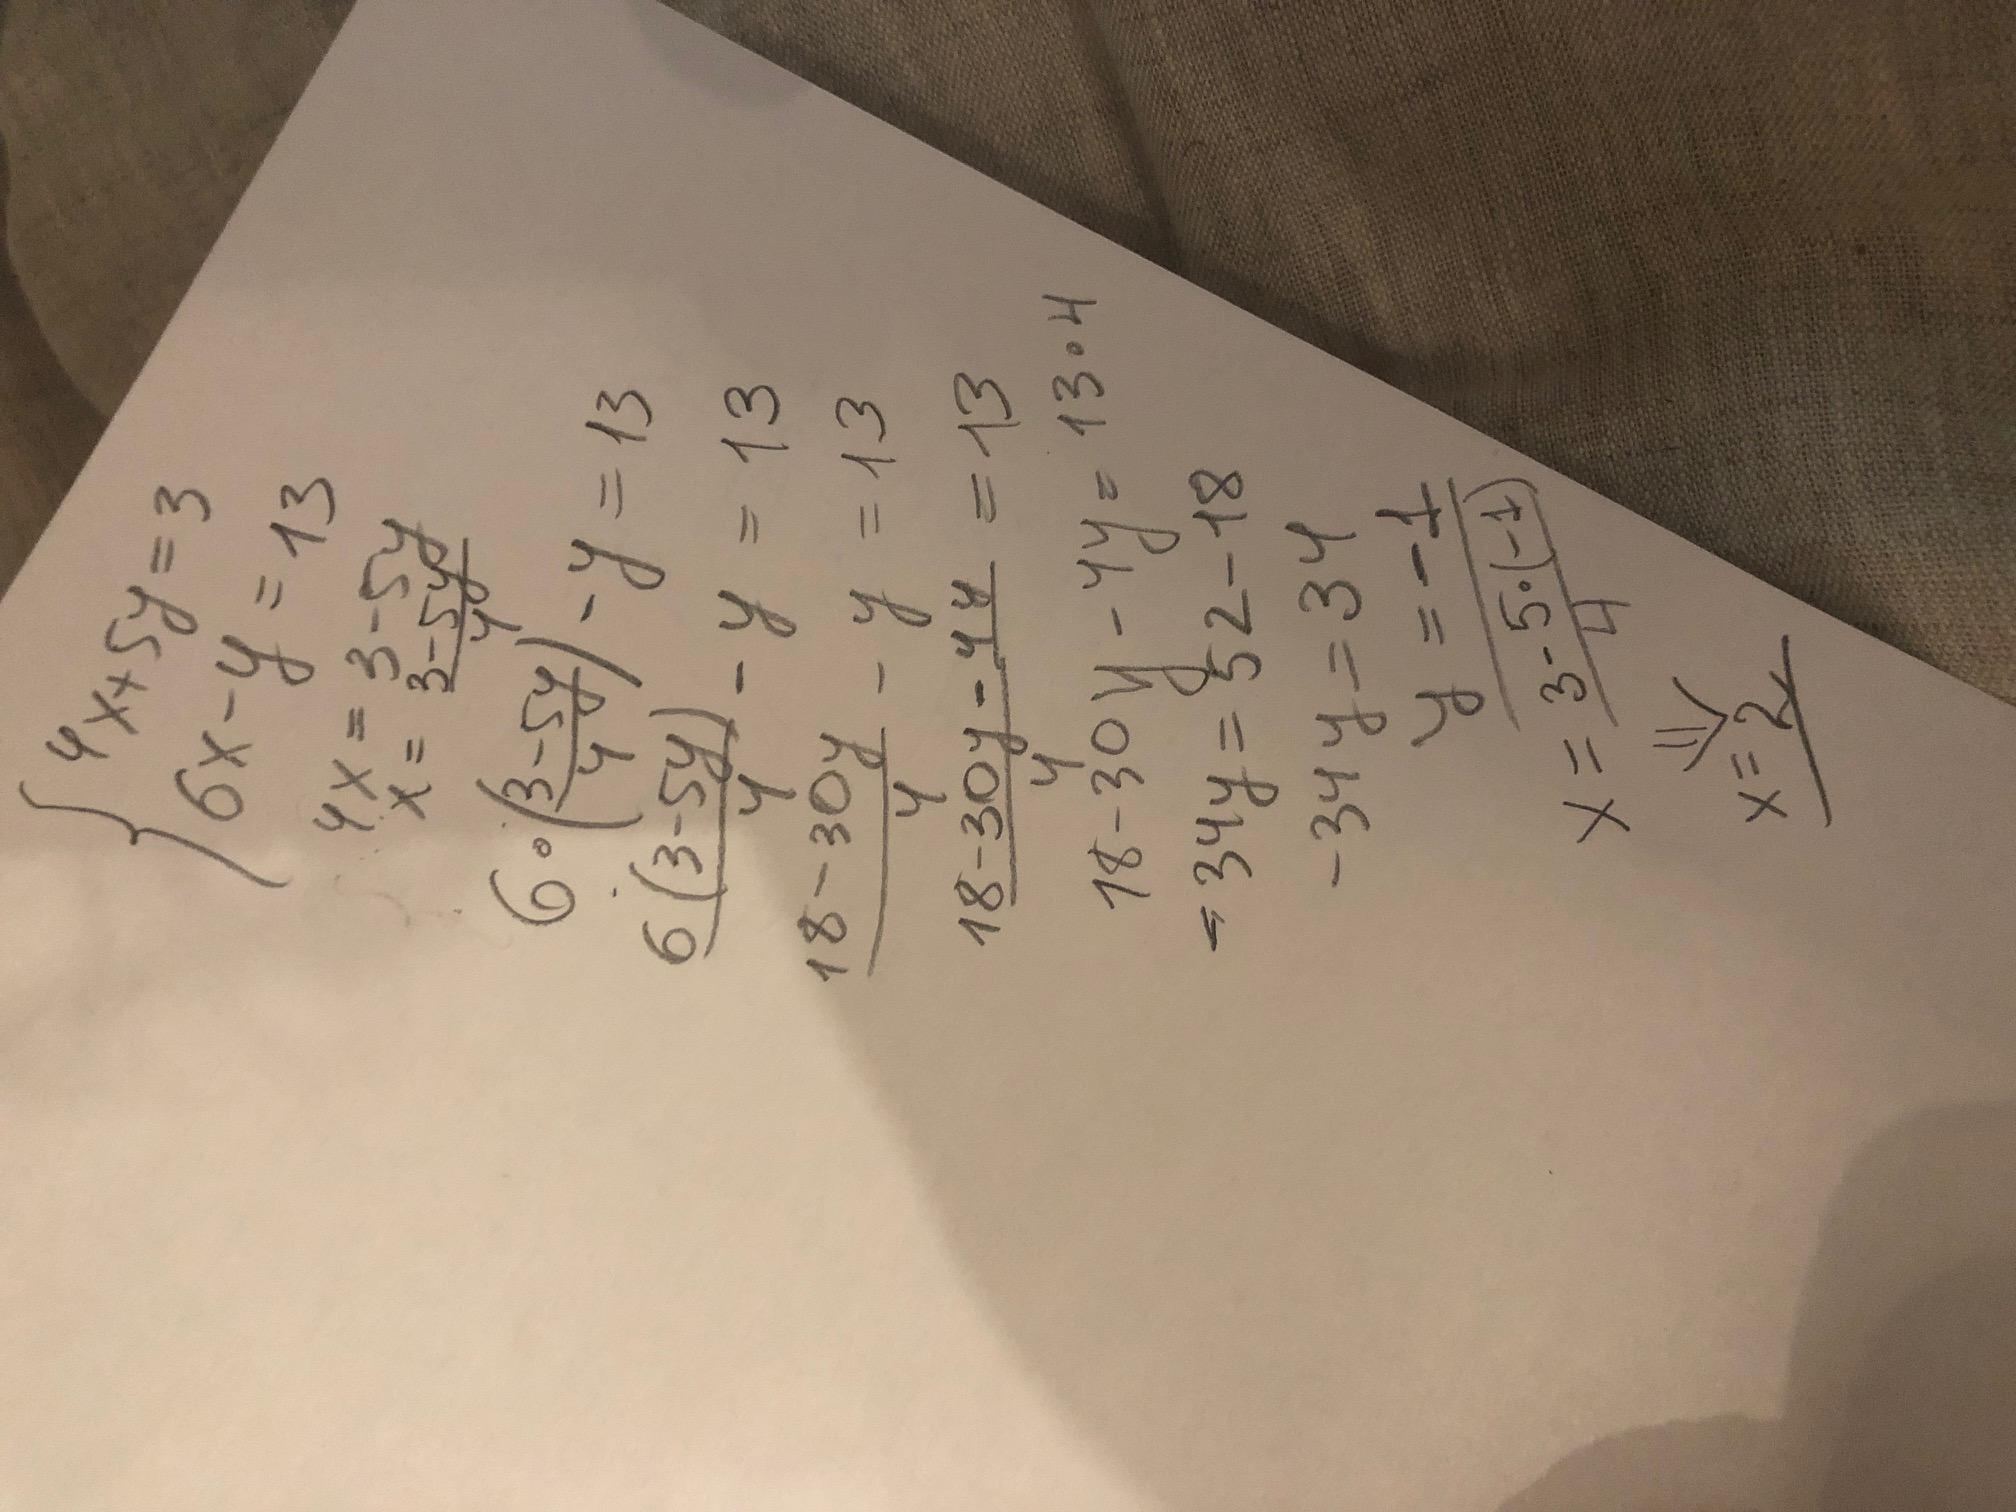 {4x+5y=3
6x-y=13
4x=3-5y
x=3-5y/4
6·(3-5y/4)-y=13
6(3-5y)/4-y=13
18-30y/4-y=13
18-30y-4y/4=13
18-30y-4y=13·4
=34y=52-18
-34y=34
y=-1
x=3-5·(-1)/4
⇓
x=2